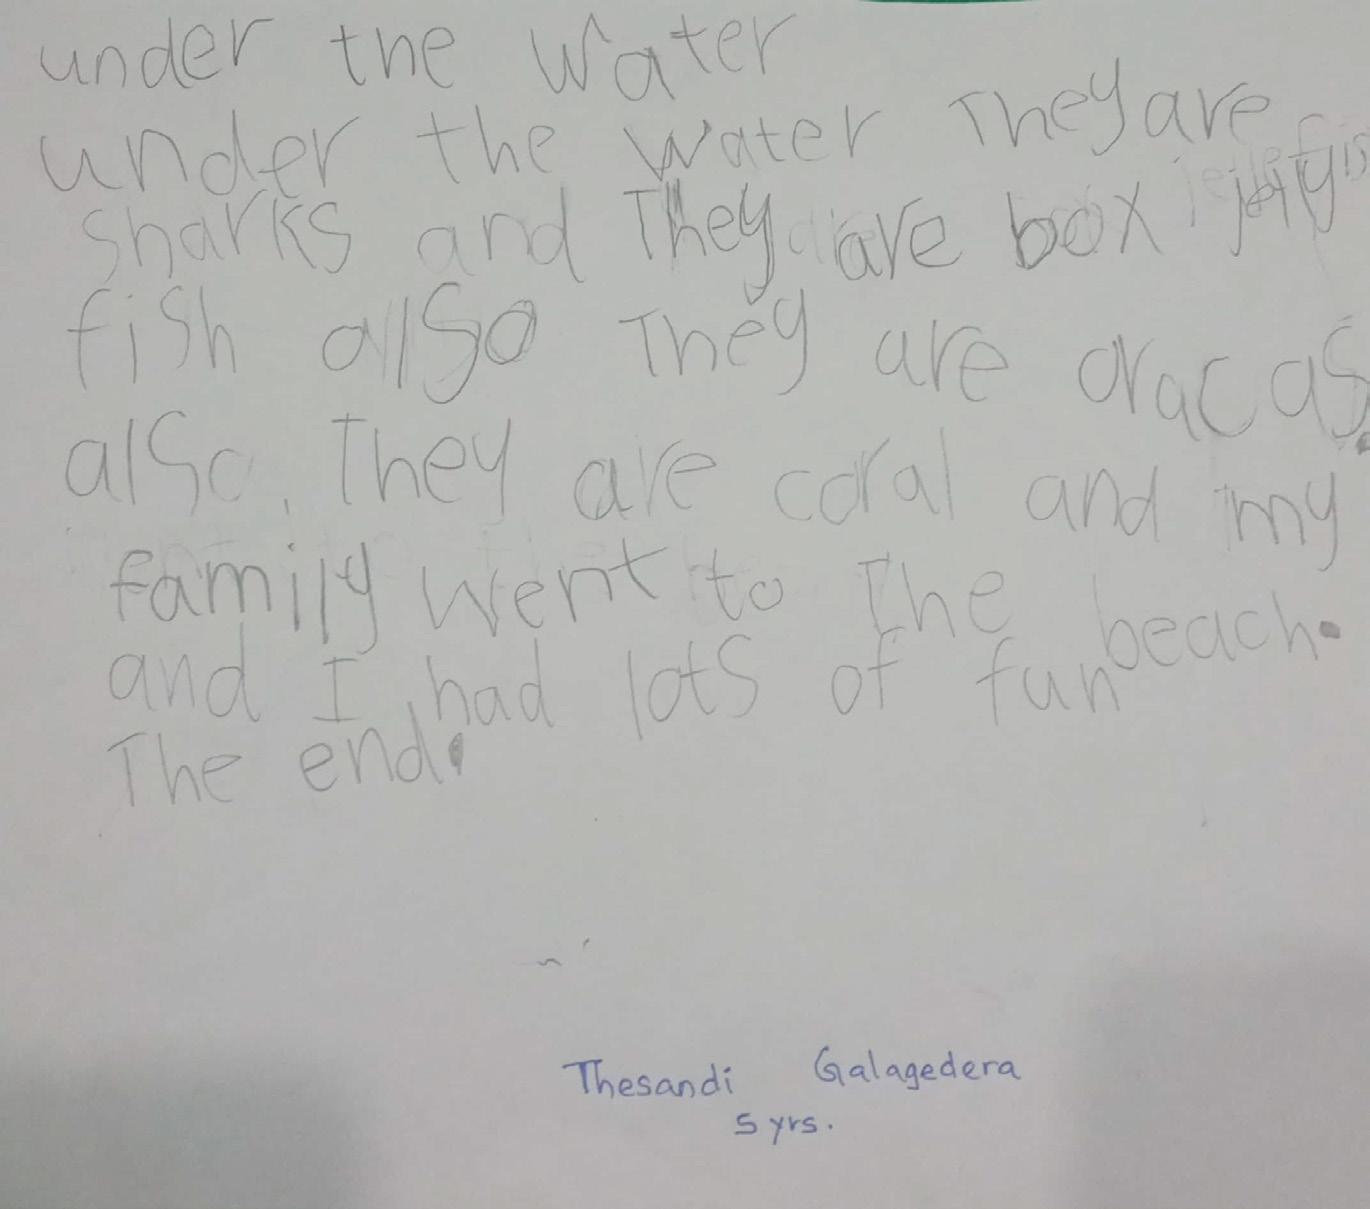 under the water
under the water They are
Sharks and They are box jelly
fish allso They are oracas
also. They are coral and my
family went to The
beach.
and I had lots of fun
The end.
Thesandi Galagedera
5 yrs.